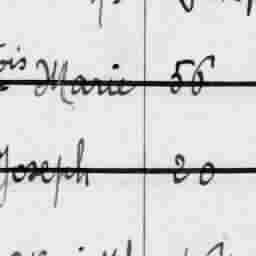 ois Marie 56
Joseph 20